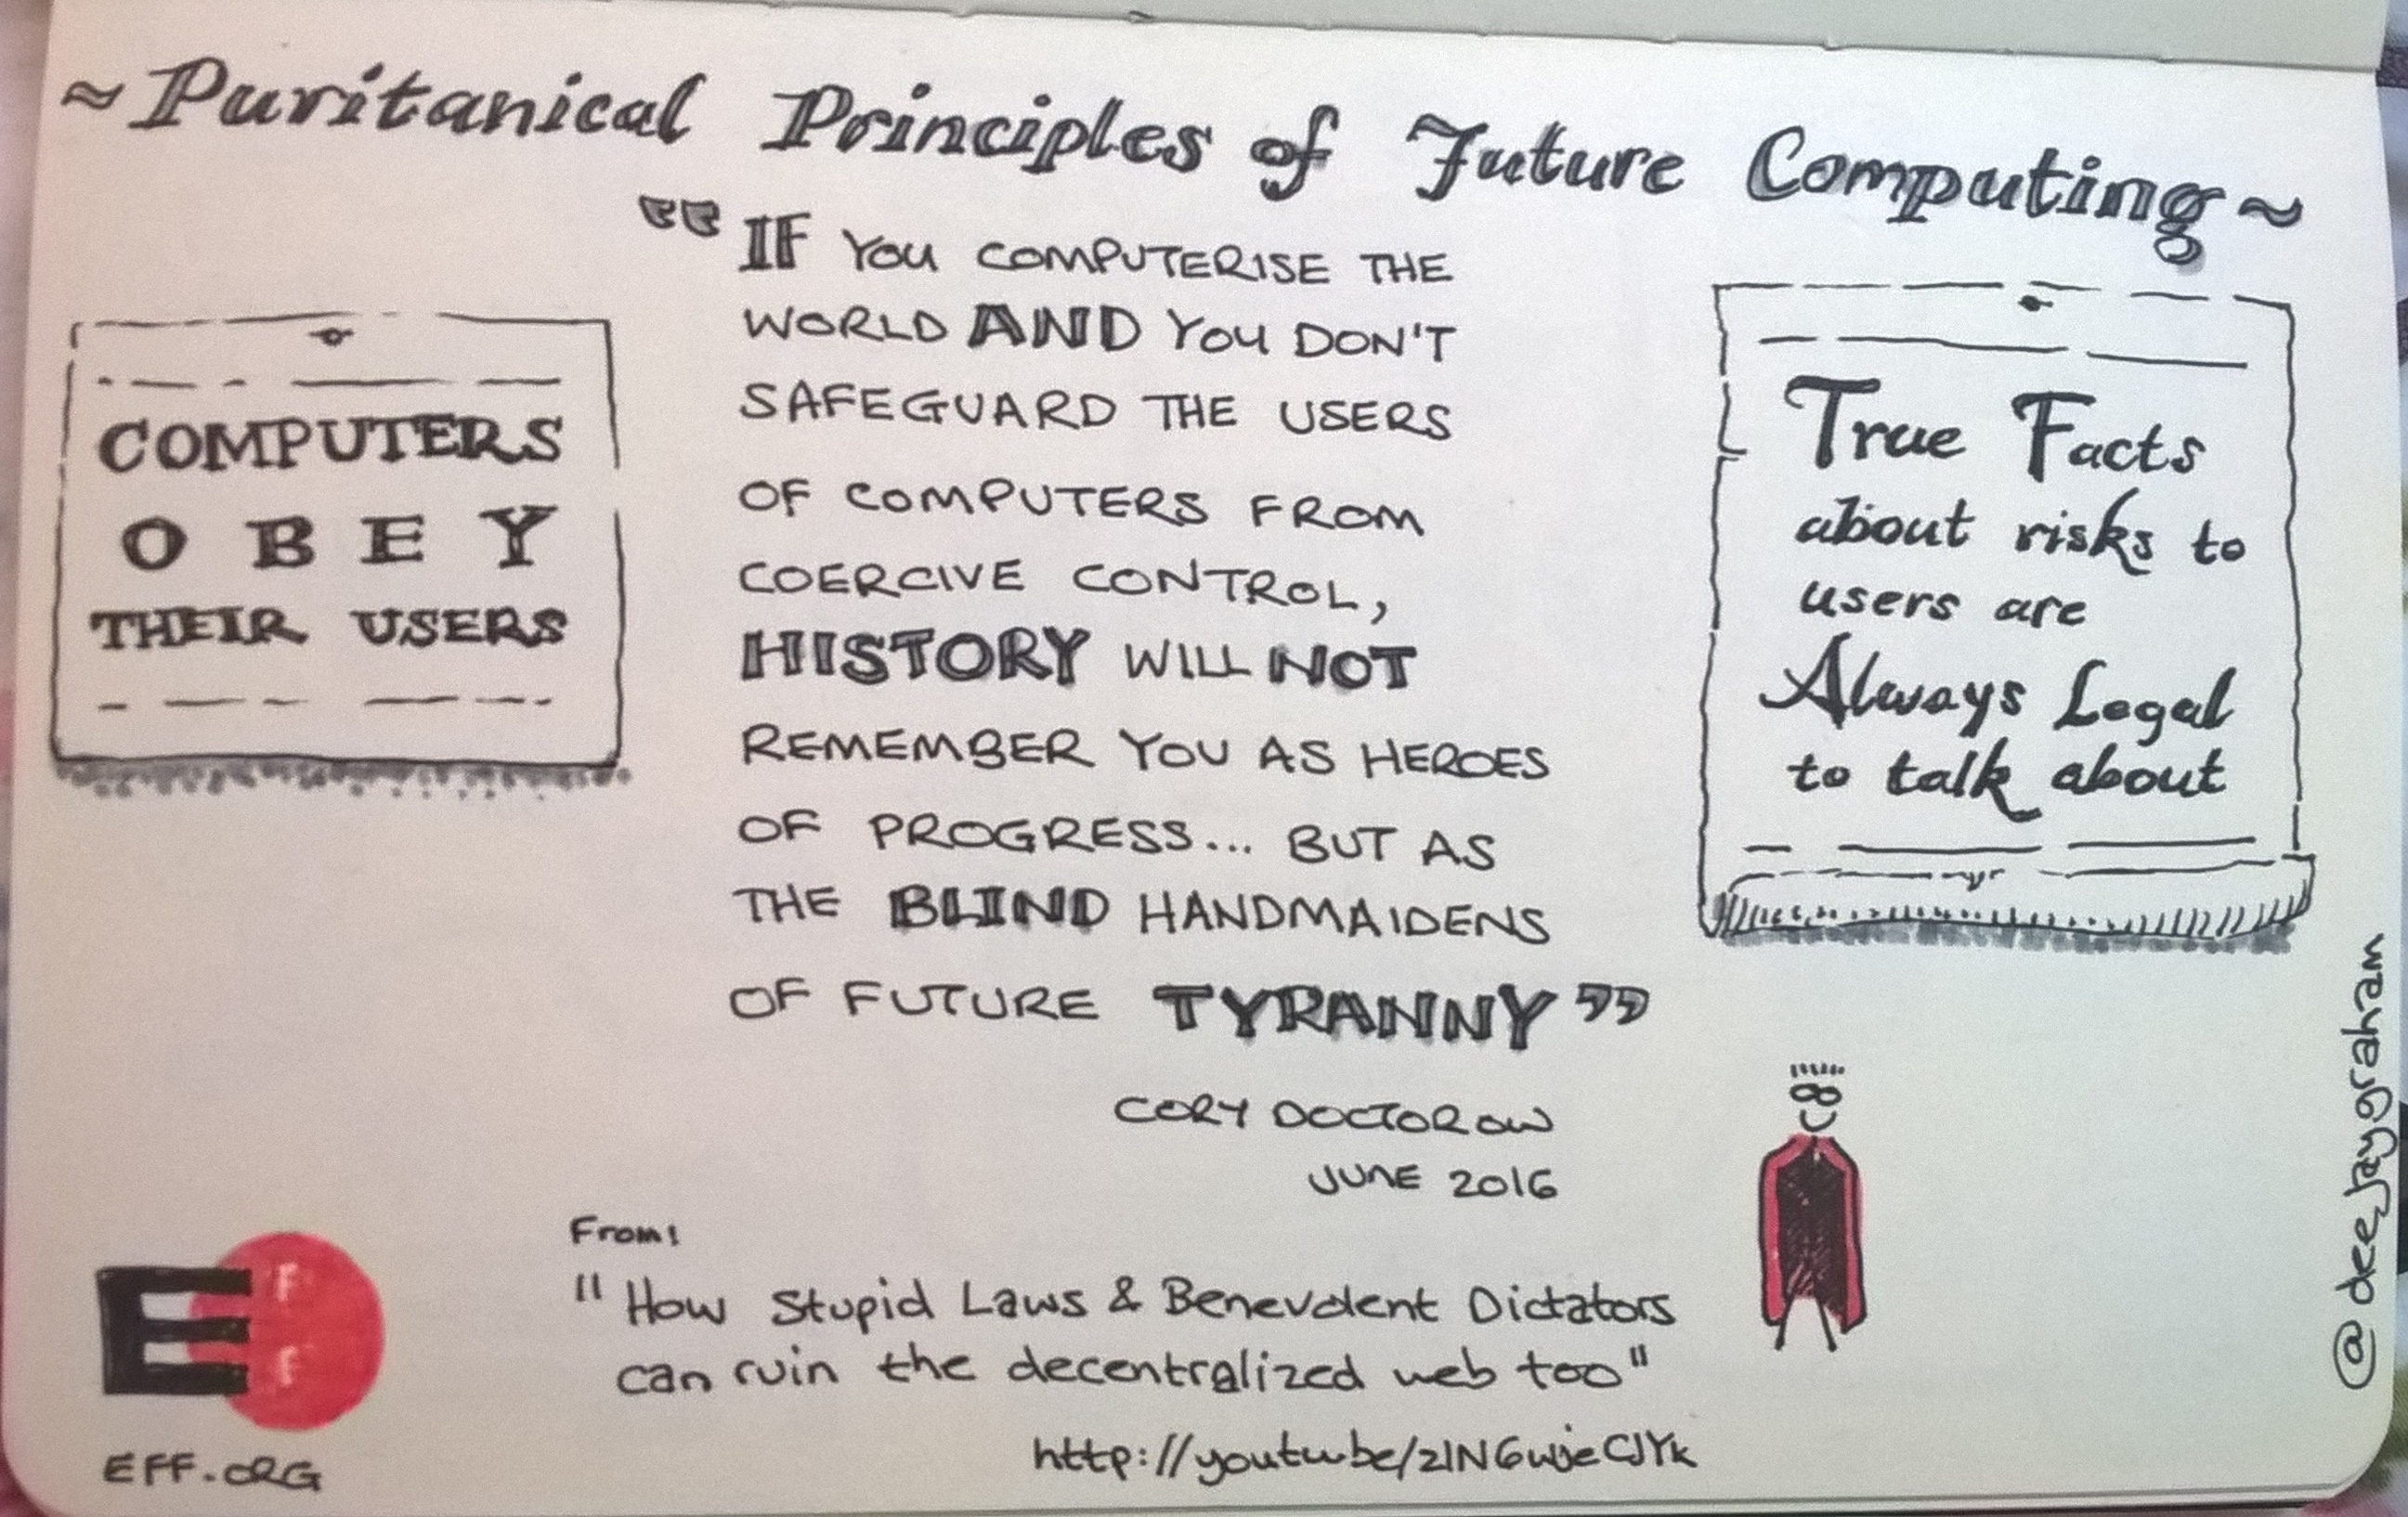 ~ Puritanical Principles of Future Computing ~
COMPUTERS
OBEY
THEIR USERS
“IF YOU COMPUTERISE THE
WORLD AND YOU DON'T
SAFEGUARD THE USERS
OF COMPUTERS FROM
COERCIVE CONTROL,
HISTORY WILL NOT
REMEMBER YOU AS HEROES
OF PROGRESS... BUT AS
THE BLIND HANDMAIDENS
OF FUTURE TYRANNY”
CORY DOCTOROW
JUNE 2016
True Facts
about risks to
users are
Always Legal
to talk about
From:
"How Stupid Laws & Benevolent Dictators
can ruin the decentralized web too"
EFF
EFF.ORG
@deejaygraham